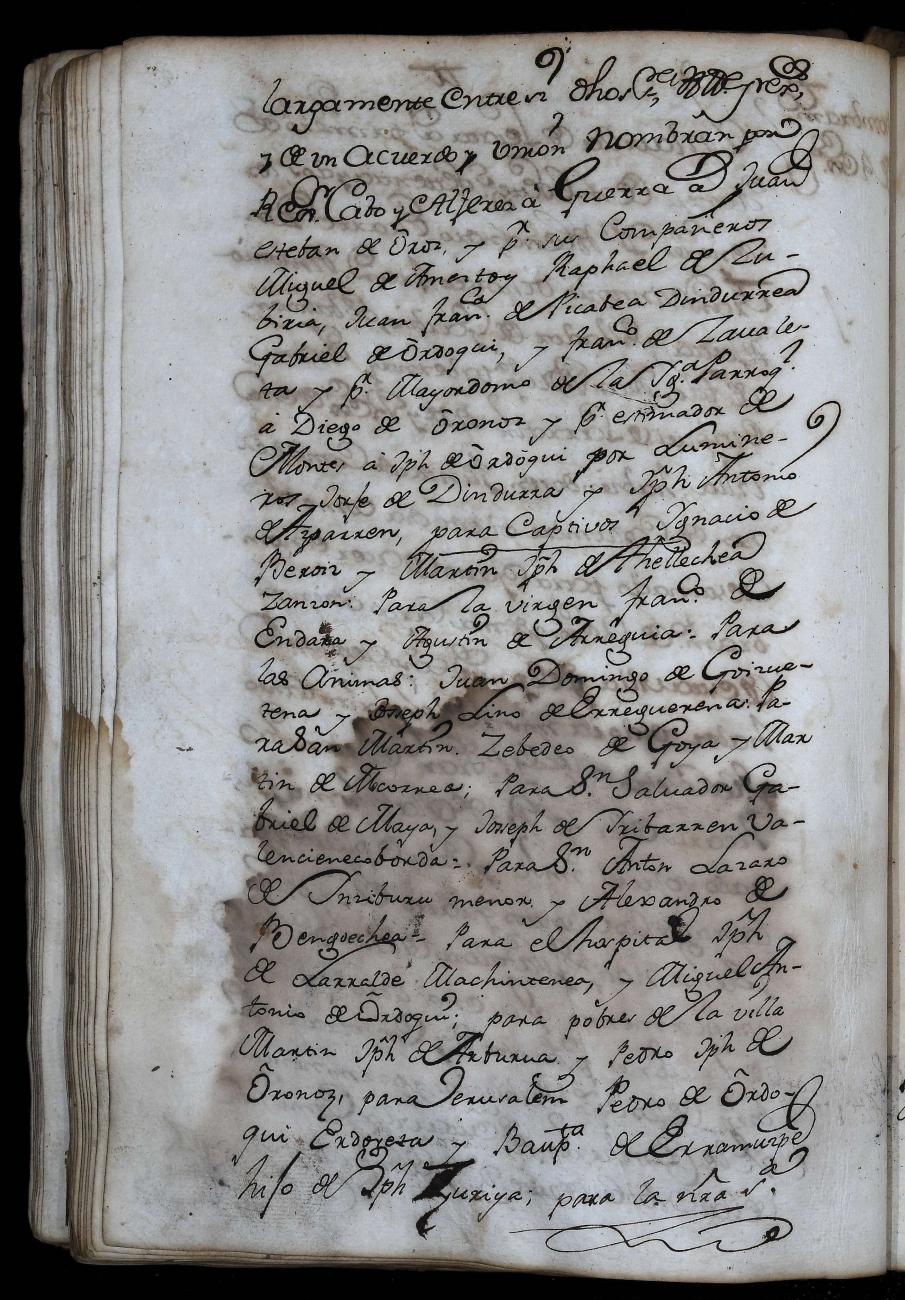 largamente entre si dhos S.res
y de un acuerdo y union nombrân por
Cabo y Alferez â Guerra â Juan
esteban de Ôroz, y p.ª sus Compañeros
Miguel de Amertoy Raphael de Zu-
biria, Juan fran.co de Picabea Dindurrea
Gabriel de Ôrdoqui, y fran.co de Zavale-
ta y p.ª Mayordomo de la Yg.ª Parroq.l
â Diego de Ôronoz y p.ª estimador de
Montes â Jph de Ôrdôqui por Lumine-
ros Jorje de Dindurra y Jph Antonio
de Azparren, para Captivos Ygnacio de
Beroiz y Martin Jph de Thellechea
Zanzon: Para la virgen fran.co de
Endara y Agustin de Arreguia: Para
las Ânimas: Juan Domingo de Goizue-
tena y Joseph Lino de Erreguerena: Pa-
ra Sân Martin. Zebedeo de Goya y Mar
tin de Micorrea; Para S.n Salvador Ga-
briel de Maya, y Joseph de Yribarren Va-
lencienecoborda:. Para S.n Anton Lazaro
de Ynziburu menor y Alexandro de
Bengoechea- Para el hospital Jph
de Larralde Machintenea, y Miguel An-
tonio de Ôrdoqui; para pôbres de la villa
Martin Jph de Arburua y Pedro Jph de
Ôronoz, para Jerusalêm Pedro de Ôrdo-
qui Erdozeta y Baup.ta de Erramuzpe
hijo de Jph Zuriya; para la nrâ s.ª